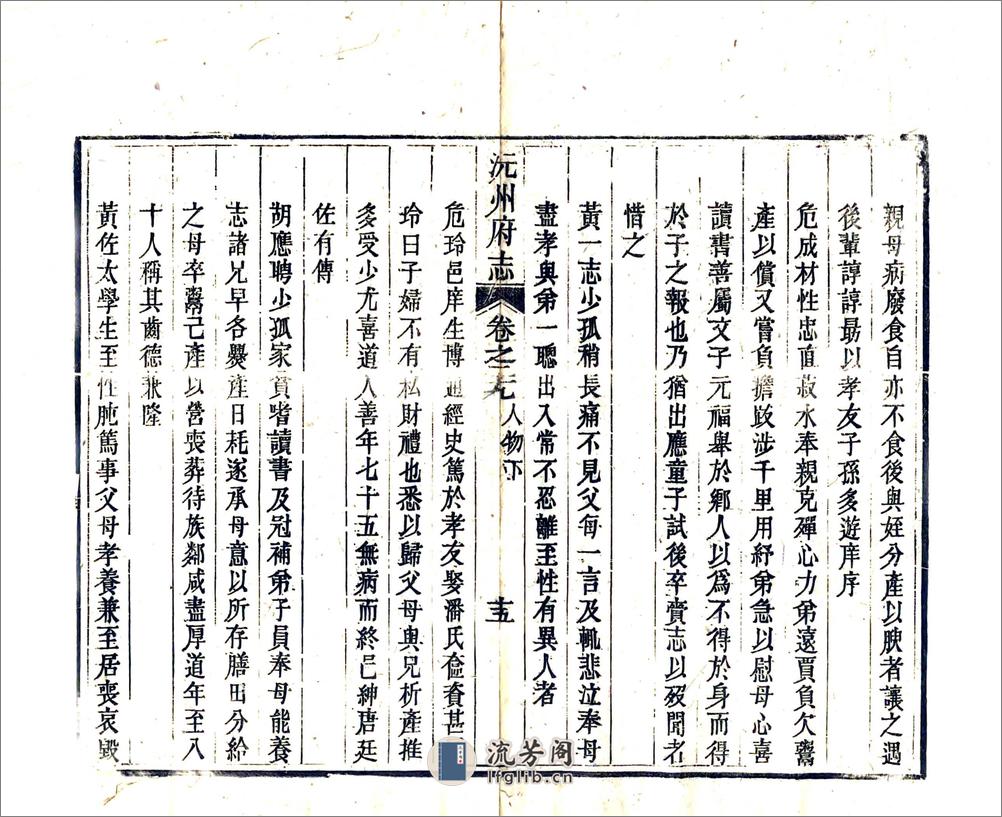 親母病廢食自亦不食後與姪分產以腴者讓之遇
後輩諄諄勗以孝友子孫多遊庠序
危成材性忠直菽水奉親克殫心力弟遠賈負欠鬻
產以償又嘗負擔跋涉千里用紓弟急以慰母心喜
讀書善屬文子元福舉於鄉人以爲不得於身而得
於子之報也乃猶出應童子試後卒賫志以歿聞者
惜之
黃一志少孤稍長痛不見父每一言及輒悲泣奉母
盡孝與弟一聰出入常不忍離至性有異人者
沅州府志
卷之
人物下
十五
危玲邑庠生博通經史篤於孝友娶潘氏奩資甚
玲曰子婦不有私財禮也悉以歸父母與兄析產推
多受少尤喜道人善年七十五無病而終邑紳唐廷
佐有傳
胡應聘少孤家貧嗜讀書及冠補弟子員奉母能養
志諸兄早各爨產日耗逐承母意以所存膳田分給
之母卒鬻己產以營喪葬待族鄰咸盡厚道年至八
十人稱其齒德兼隆
黃佐太學生至性肫篤事父母孝養兼至居喪哀毀
流芳阁
lfglib.cn